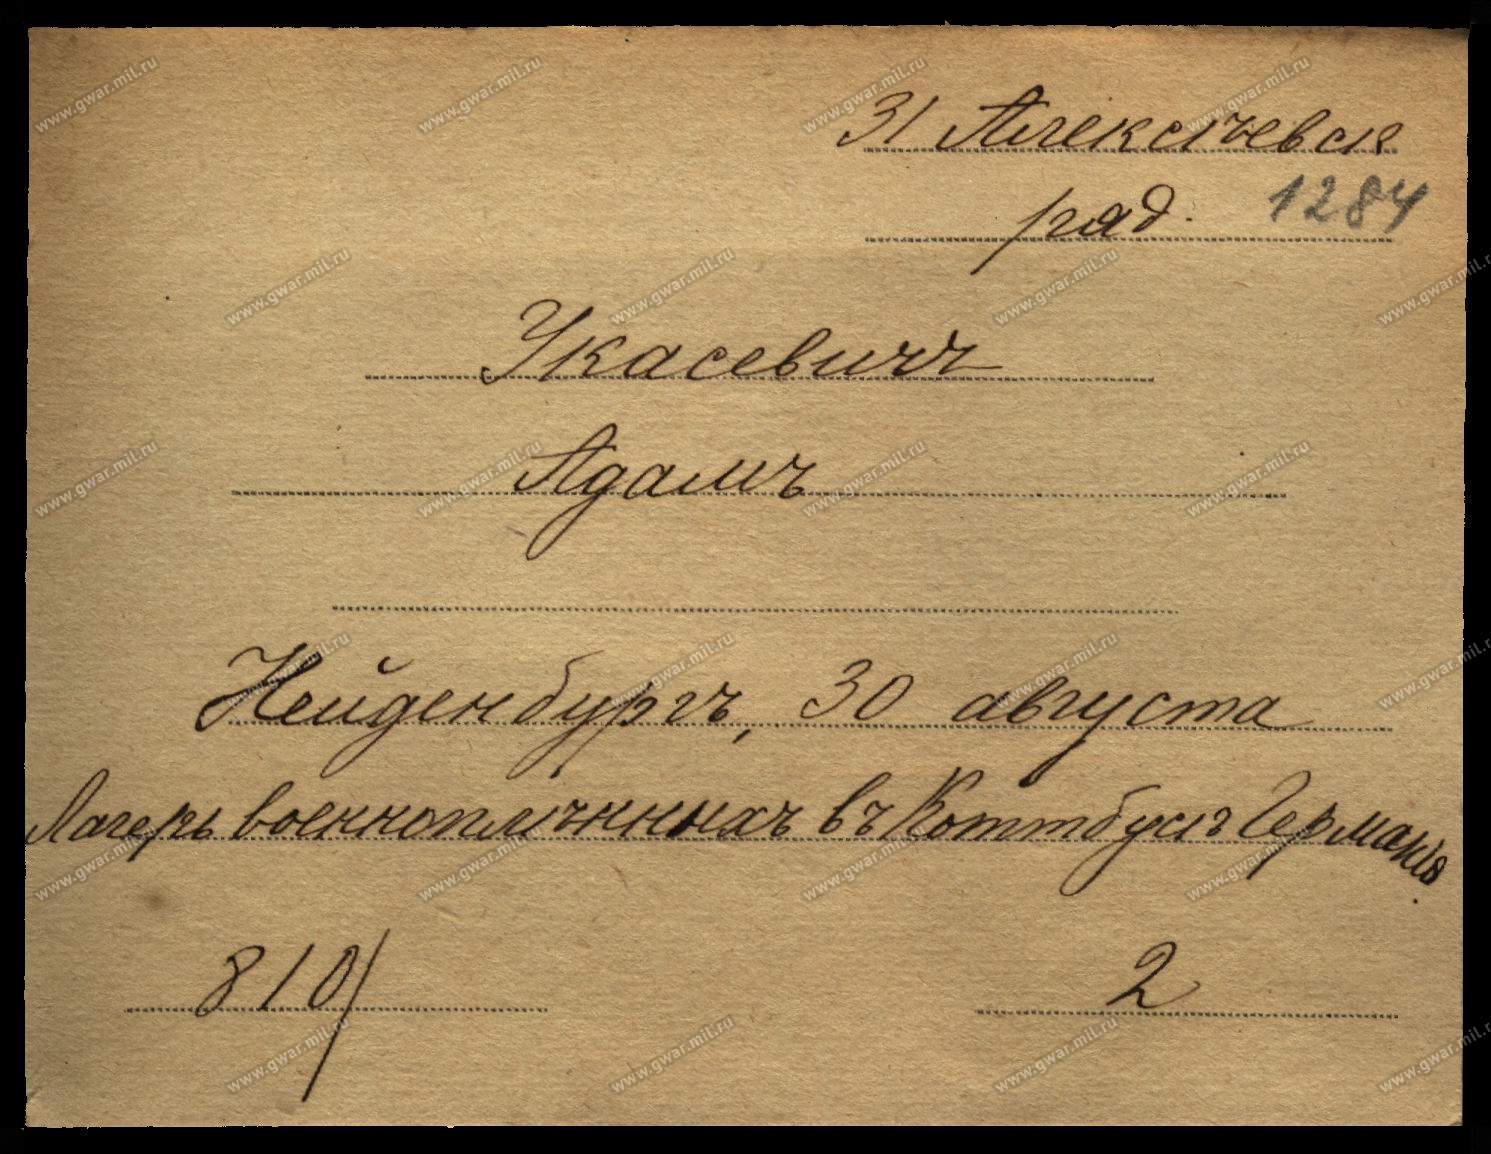 31 Алексѣевск
ряд. 1284
Укасевичъ
Адамъ
Нейденбургъ, 30 августа
Лагерь военноплѣнныхъ въ Коттбусѣ Германія
810/ 2
www.gwar.mil.ru